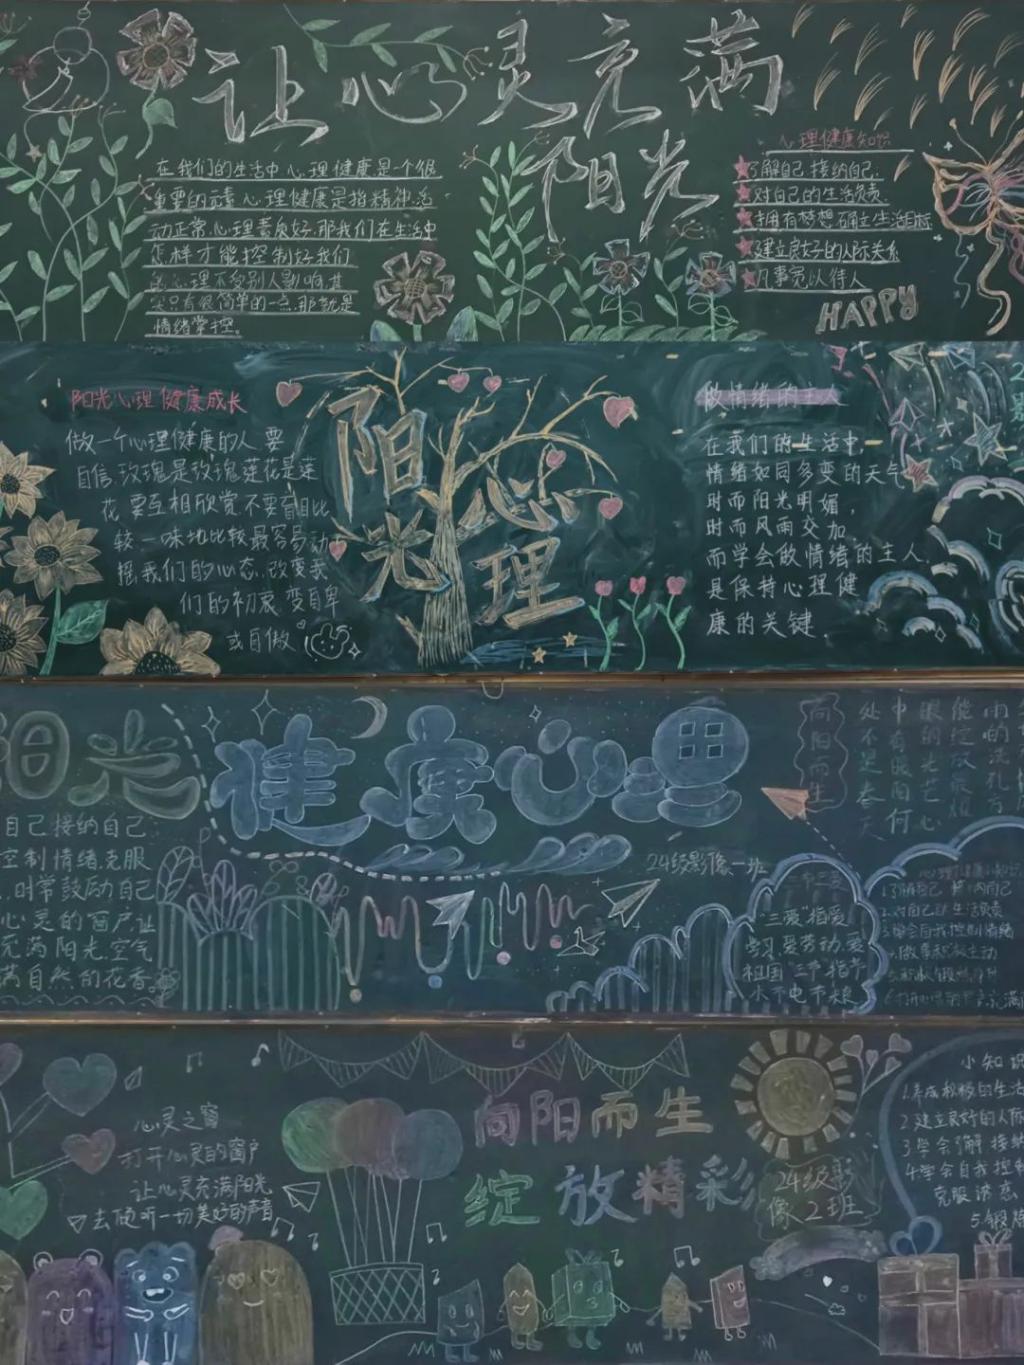 让心灵充满
阳光
在我们的生活中心理健康是一个很
重要的元素心理健康是指精神.活
动正常.心理素质好.那我们在生活中
怎样才能控制好我们
心理不受别人影响.其
实只有很简单的一点.那就是
情绪掌控。
心理健康知识
了解自己接纳自己.
对自己的生活负责
拥有梦想.确立生活目标
建立良好的人际关系
凡事宽以待人
HAPPY
阳光心理健康成长
做一个心理健康的人要
自信.玫瑰是玫瑰莲花是莲
花.要互相欣赏.不要盲目比
较.一味地比较最容易动
摇我们的心态.改变我
们的初衷.变自卑
或自傲
阳
光
心
理
做情绪的主人
在我们的生活中,
情绪如同多变的天气
时而阳光明媚,
时而风雨交加.
而学会做情绪的主人.
是保持心理健
康的关键.
阳光
健康心理
自己接纳自己
控制情绪.克服
时常鼓励自己
心灵的窗户.让
充满阳光.空气
满自然的花香
24级影像一班
向阳而生
处不是春天
中有暖阳何
眼朗光芒心
"三爱"指爱
学习.爱劳动.爱
祖国.三节指节
水节电节粮
1.了解自己接纳自己
2.对自己的生活负责
3.学会自我控制情绪
心灵之窗
打开心灵的窗户
让心灵充满阳光
去倾听一切美好的声音
向阳而生
绽放精彩
24级影
像2班
小知识
1.养成积极的生活
2建立良好的人际
3学会了解接纳
4学会自我控制
克服
5.锻炼